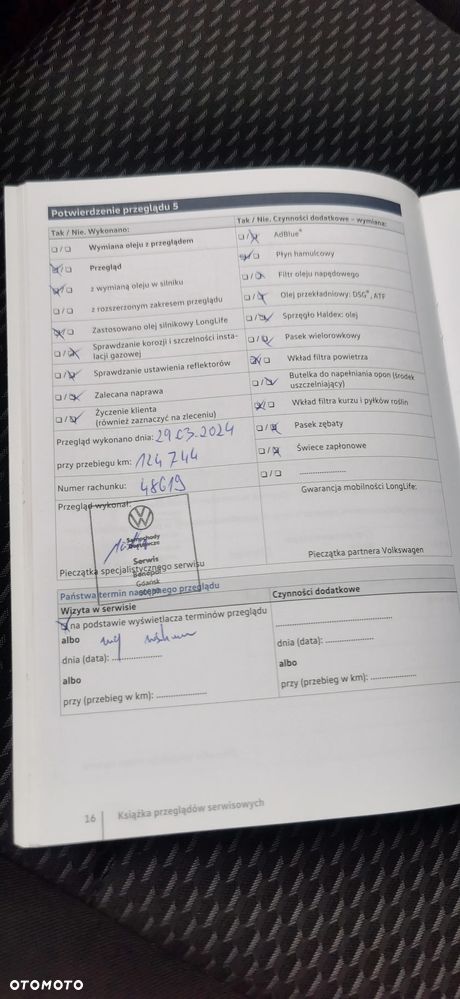 Potwierdzenie przeglądu 5
Tak / Nie. Wykonano:
Wymiana oleju z przeglądem
Przegląd
z wymianą oleju w silniku
z rozszerzonym zakresem przeglądu
Zastosowano olej silnikowy LongLife
Sprawdzanie korozji i szczelności insta-
lacji gazowej
Sprawdzanie ustawienia reflektorów
Zalecana naprawa
Życzenie klienta
(również zaznaczyć na zleceniu)
Przegląd wykonano dnia: 29.03.2024
przy przebiegu km: 124 744
Numer rachunku: 48619
Przegląd wykonał:
Samochody
Użytkowe
Serwis
Gdańsk
Pieczątka specjalistycznego serwisu
Tak / Nie. Czynności dodatkowe – wymiana:
AdBlue®
Płyn hamulcowy
Filtr oleju napędowego
Olej przekładniowy: DSG®, ATF
Sprzęgło Haldex: olej
Pasek wielorowkowy
Wkład filtra powietrza
Butelka do napełniania opon (środek
uszczelniający)
Wkład filtra kurzu i pyłków roślin
Pasek zębaty
Świece zapłonowe
....................
Gwarancja mobilności LongLife:
Pieczątka partnera Volkswagen
Państwa termin następnego przeglądu
Wizyta w serwisie
na podstawie wyświetlacza terminów przeglądu
albo
dnia (data): ....................
albo
przy (przebieg w km): ....................
Czynności dodatkowe
..................................................
dnia (data): ....................
albo
przy (przebieg w km): ....................
16 Książka przeglądów serwisowych
OTOMOTO